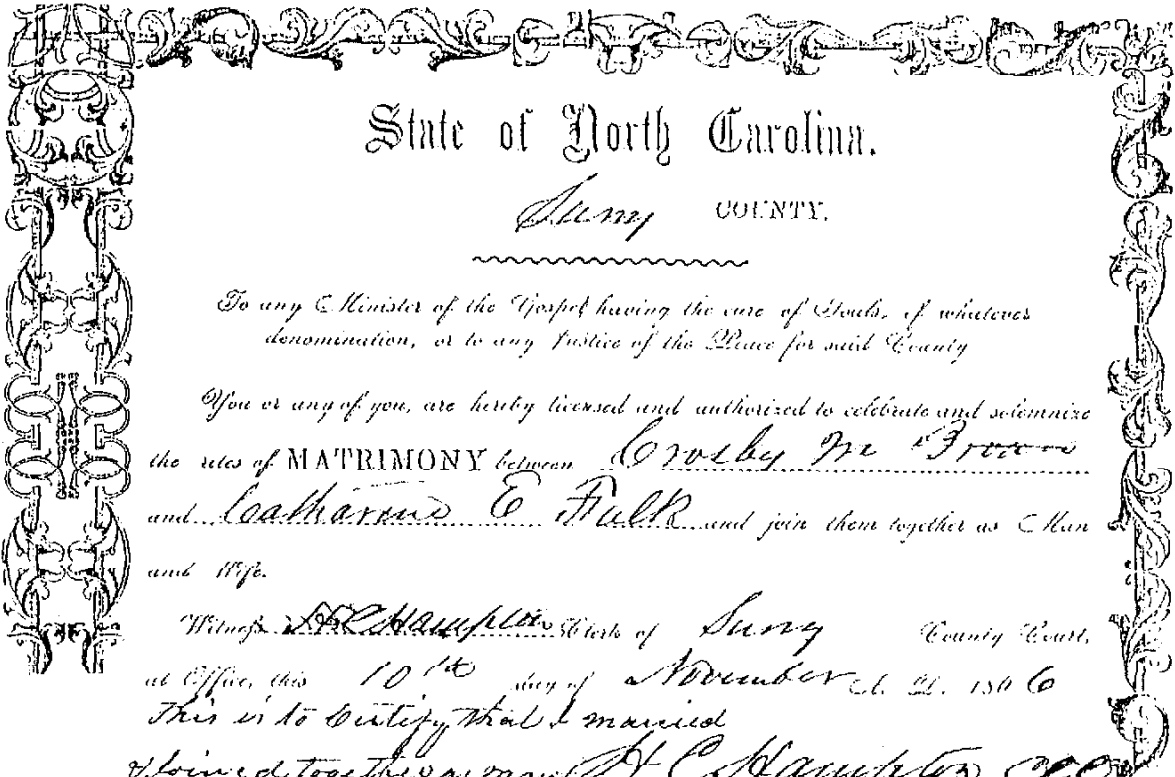 State of North Carolina.
Surry COUNTY.
To any Minister of the Gospel having the cure of Souls, of whatever
denomination, or to any Justice of the Peace for said County
You or any of you, are hereby licensed and authorized to celebrate and solemnize
the rites of MATRIMONY between Crosby M
and Catharine E Fulk and join them together as Man
and Wife.
Witness H C Hampton Clerk of Surry County Court,
at Office, this 10th day of November A. D. 1866
This is to Certify that I married
& Joined together H C Hampton